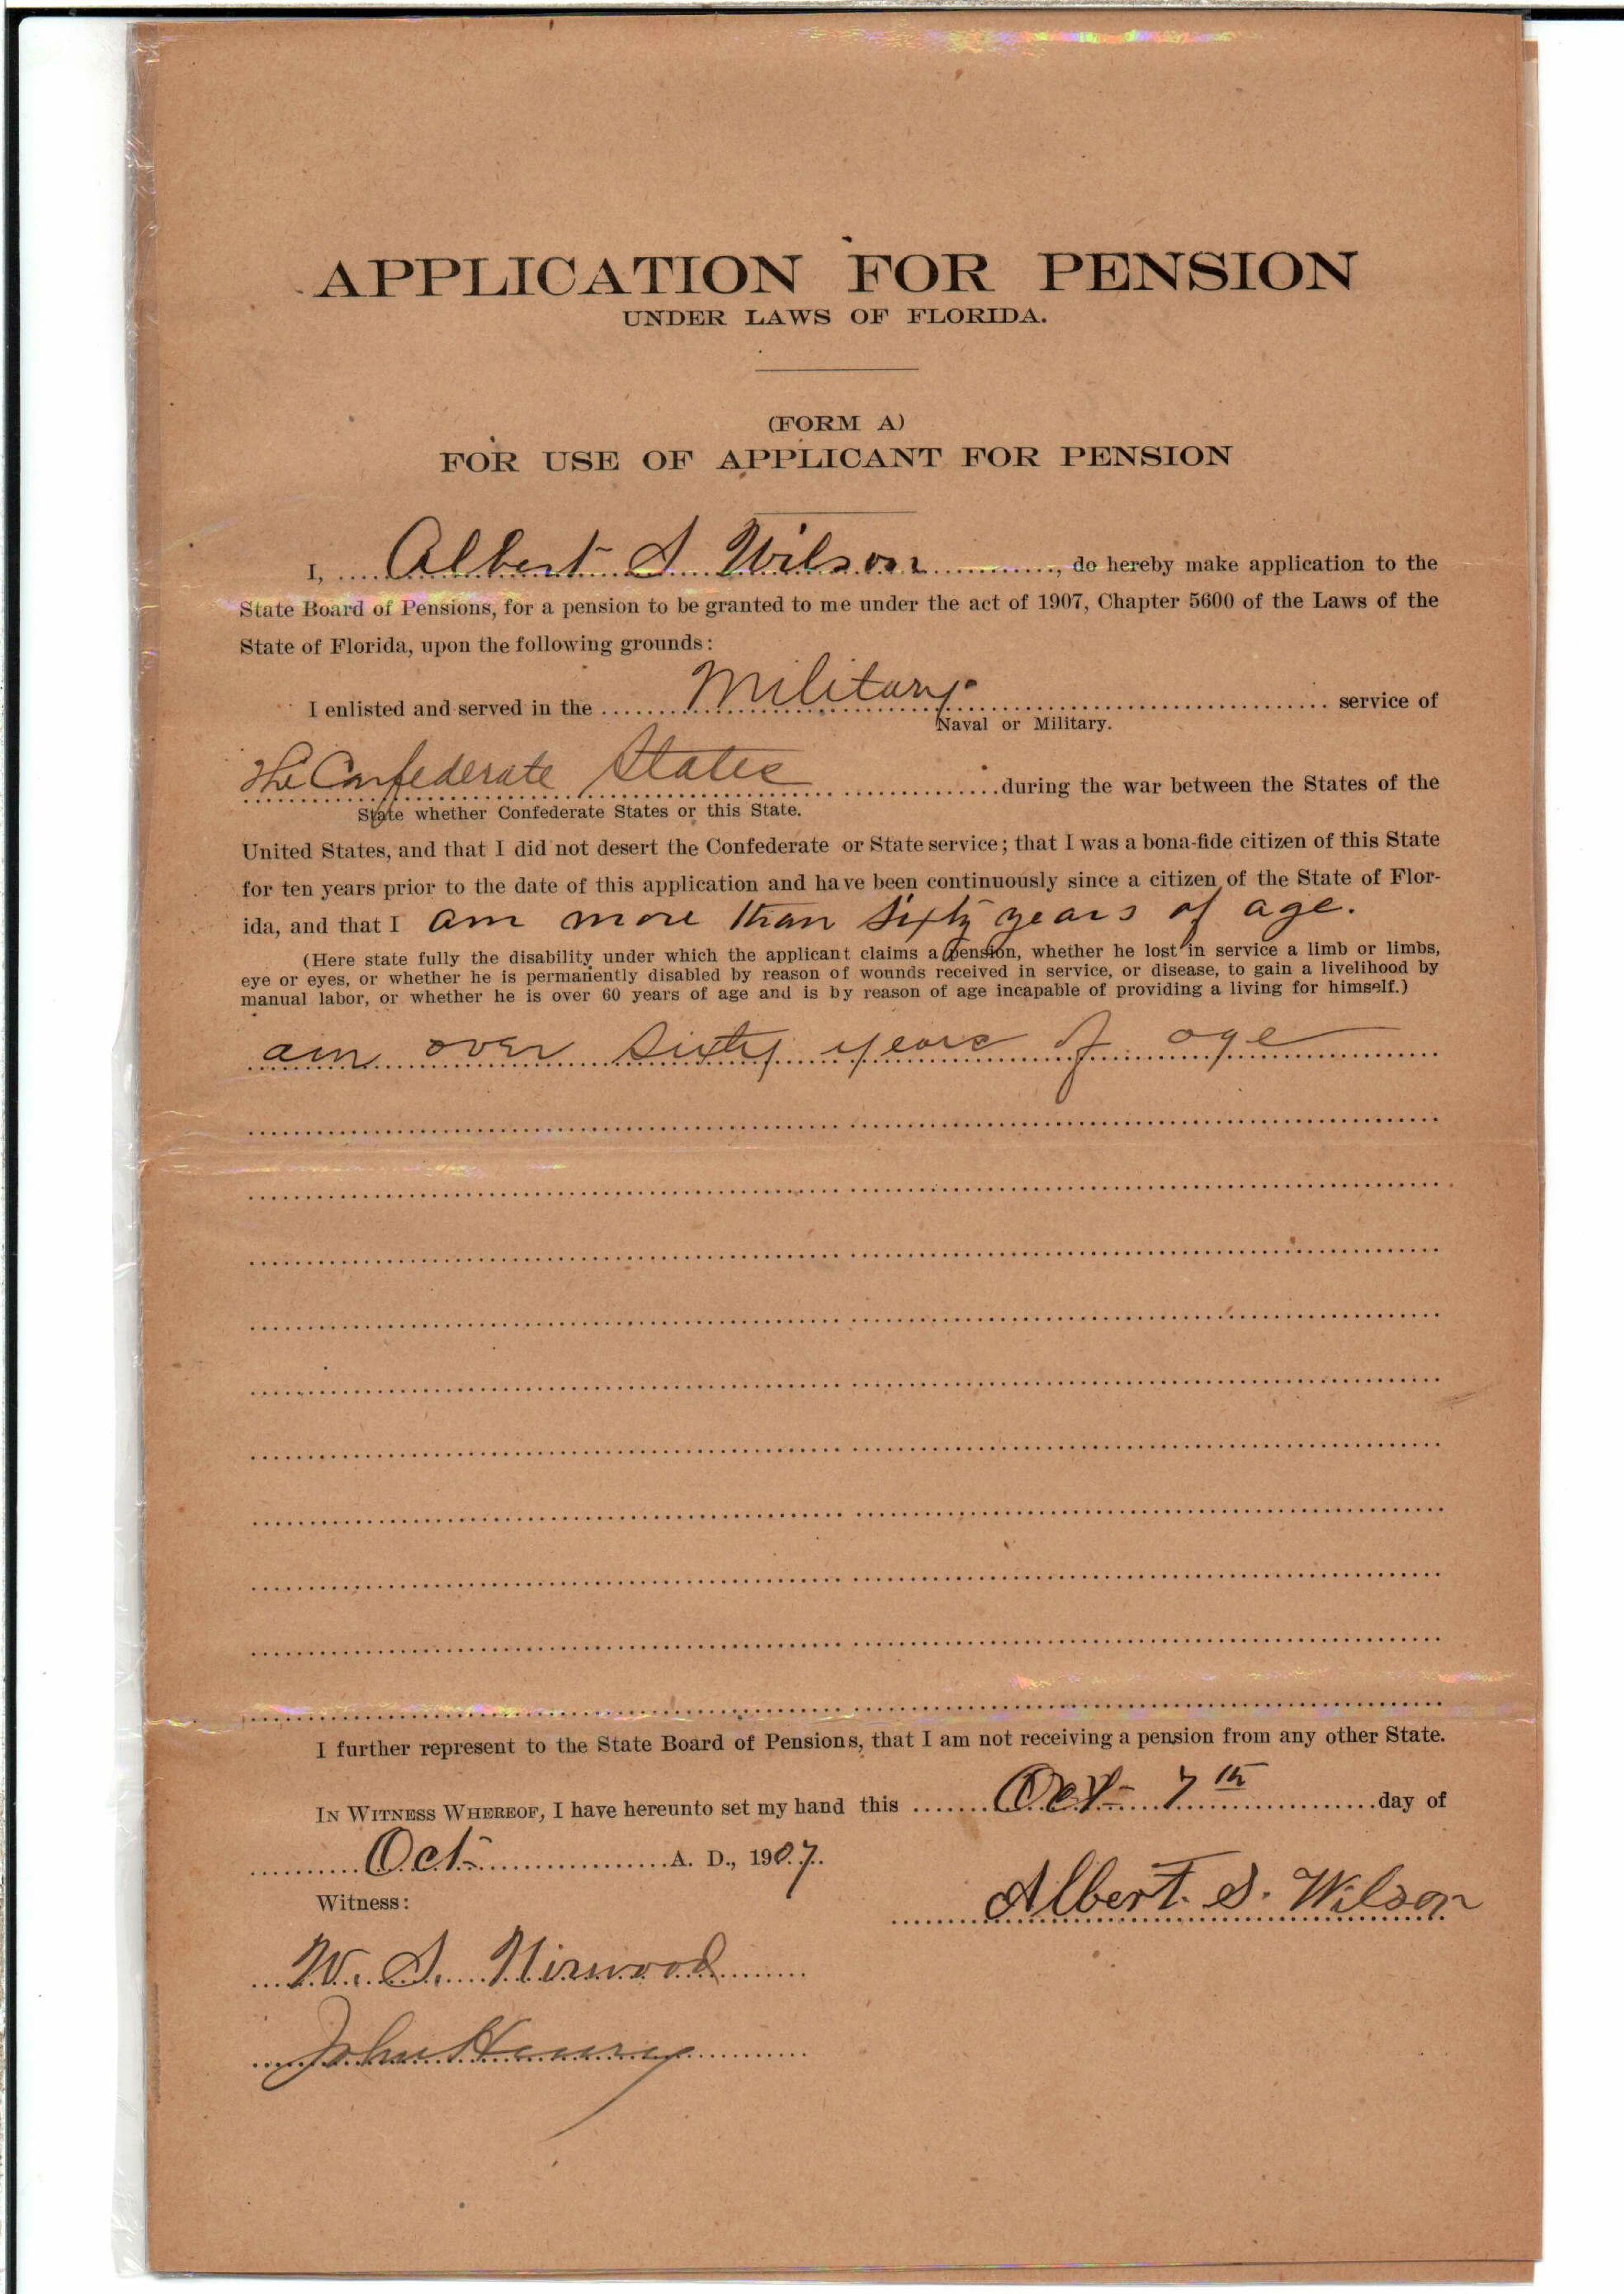 APPLICATION FOR PENSION
UNDER LAWS OF FLORIDA.
(FORM A)
FOR USE OF APPLICANT FOR PENSION
I, Albert S Wilson, do hereby make application to the
State Board of Pensions, for a pension to be granted to me under the act of 1907, Chapter 5600 of the Laws of the
State of Florida, upon the following grounds:
I enlisted and served in the Military service of
Naval or Military.
The Confederate States during the war between the States of the
State whether Confederate States or this State.
United States, and that I did not desert the Confederate or State service; that I was a bona-fide citizen of this State
for ten years prior to the date of this application and have been continuously since a citizen of the State of Flor-
ida, and that I am more than sixty years of age.
(Here state fully the disability under which the applicant claims a pension, whether he lost in service a limb or limbs,
eye or eyes, or whether he is permanently disabled by reason of wounds received in service, or disease, to gain a livelihood by
manual labor, or whether he is over 60 years of age and is by reason of age incapable of providing a living for himself.)
am over sixty years of age
I further represent to the State Board of Pensions, that I am not receiving a pension from any other State.
In Witness Whereof, I have hereunto set my hand this Oct 7th day of
Oct A. D., 1907.
Witness:
Albert. S. Wilson
W. S.
John Henry